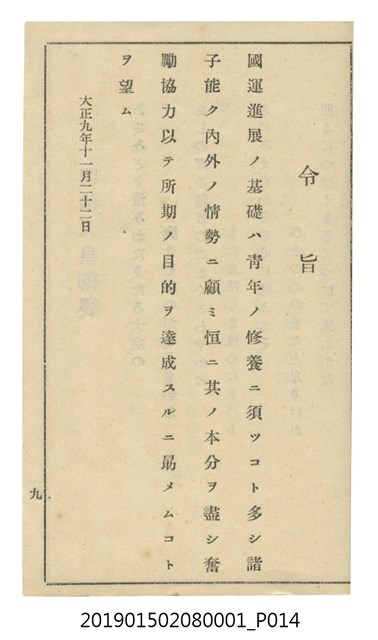 令旨
國運進展ノ基礎ハ靑年ノ修養ニ須ツコト多シ諸
子能ク內外ノ情勢ニ顧ミ恒ニ其ノ本分ヲ盡シ奮
勵協力以テ所期ノ目的ヲ達成スルニ勗メムコト
ヲ望ム
大正九年十一月二十二日
九
201901502080001_P014